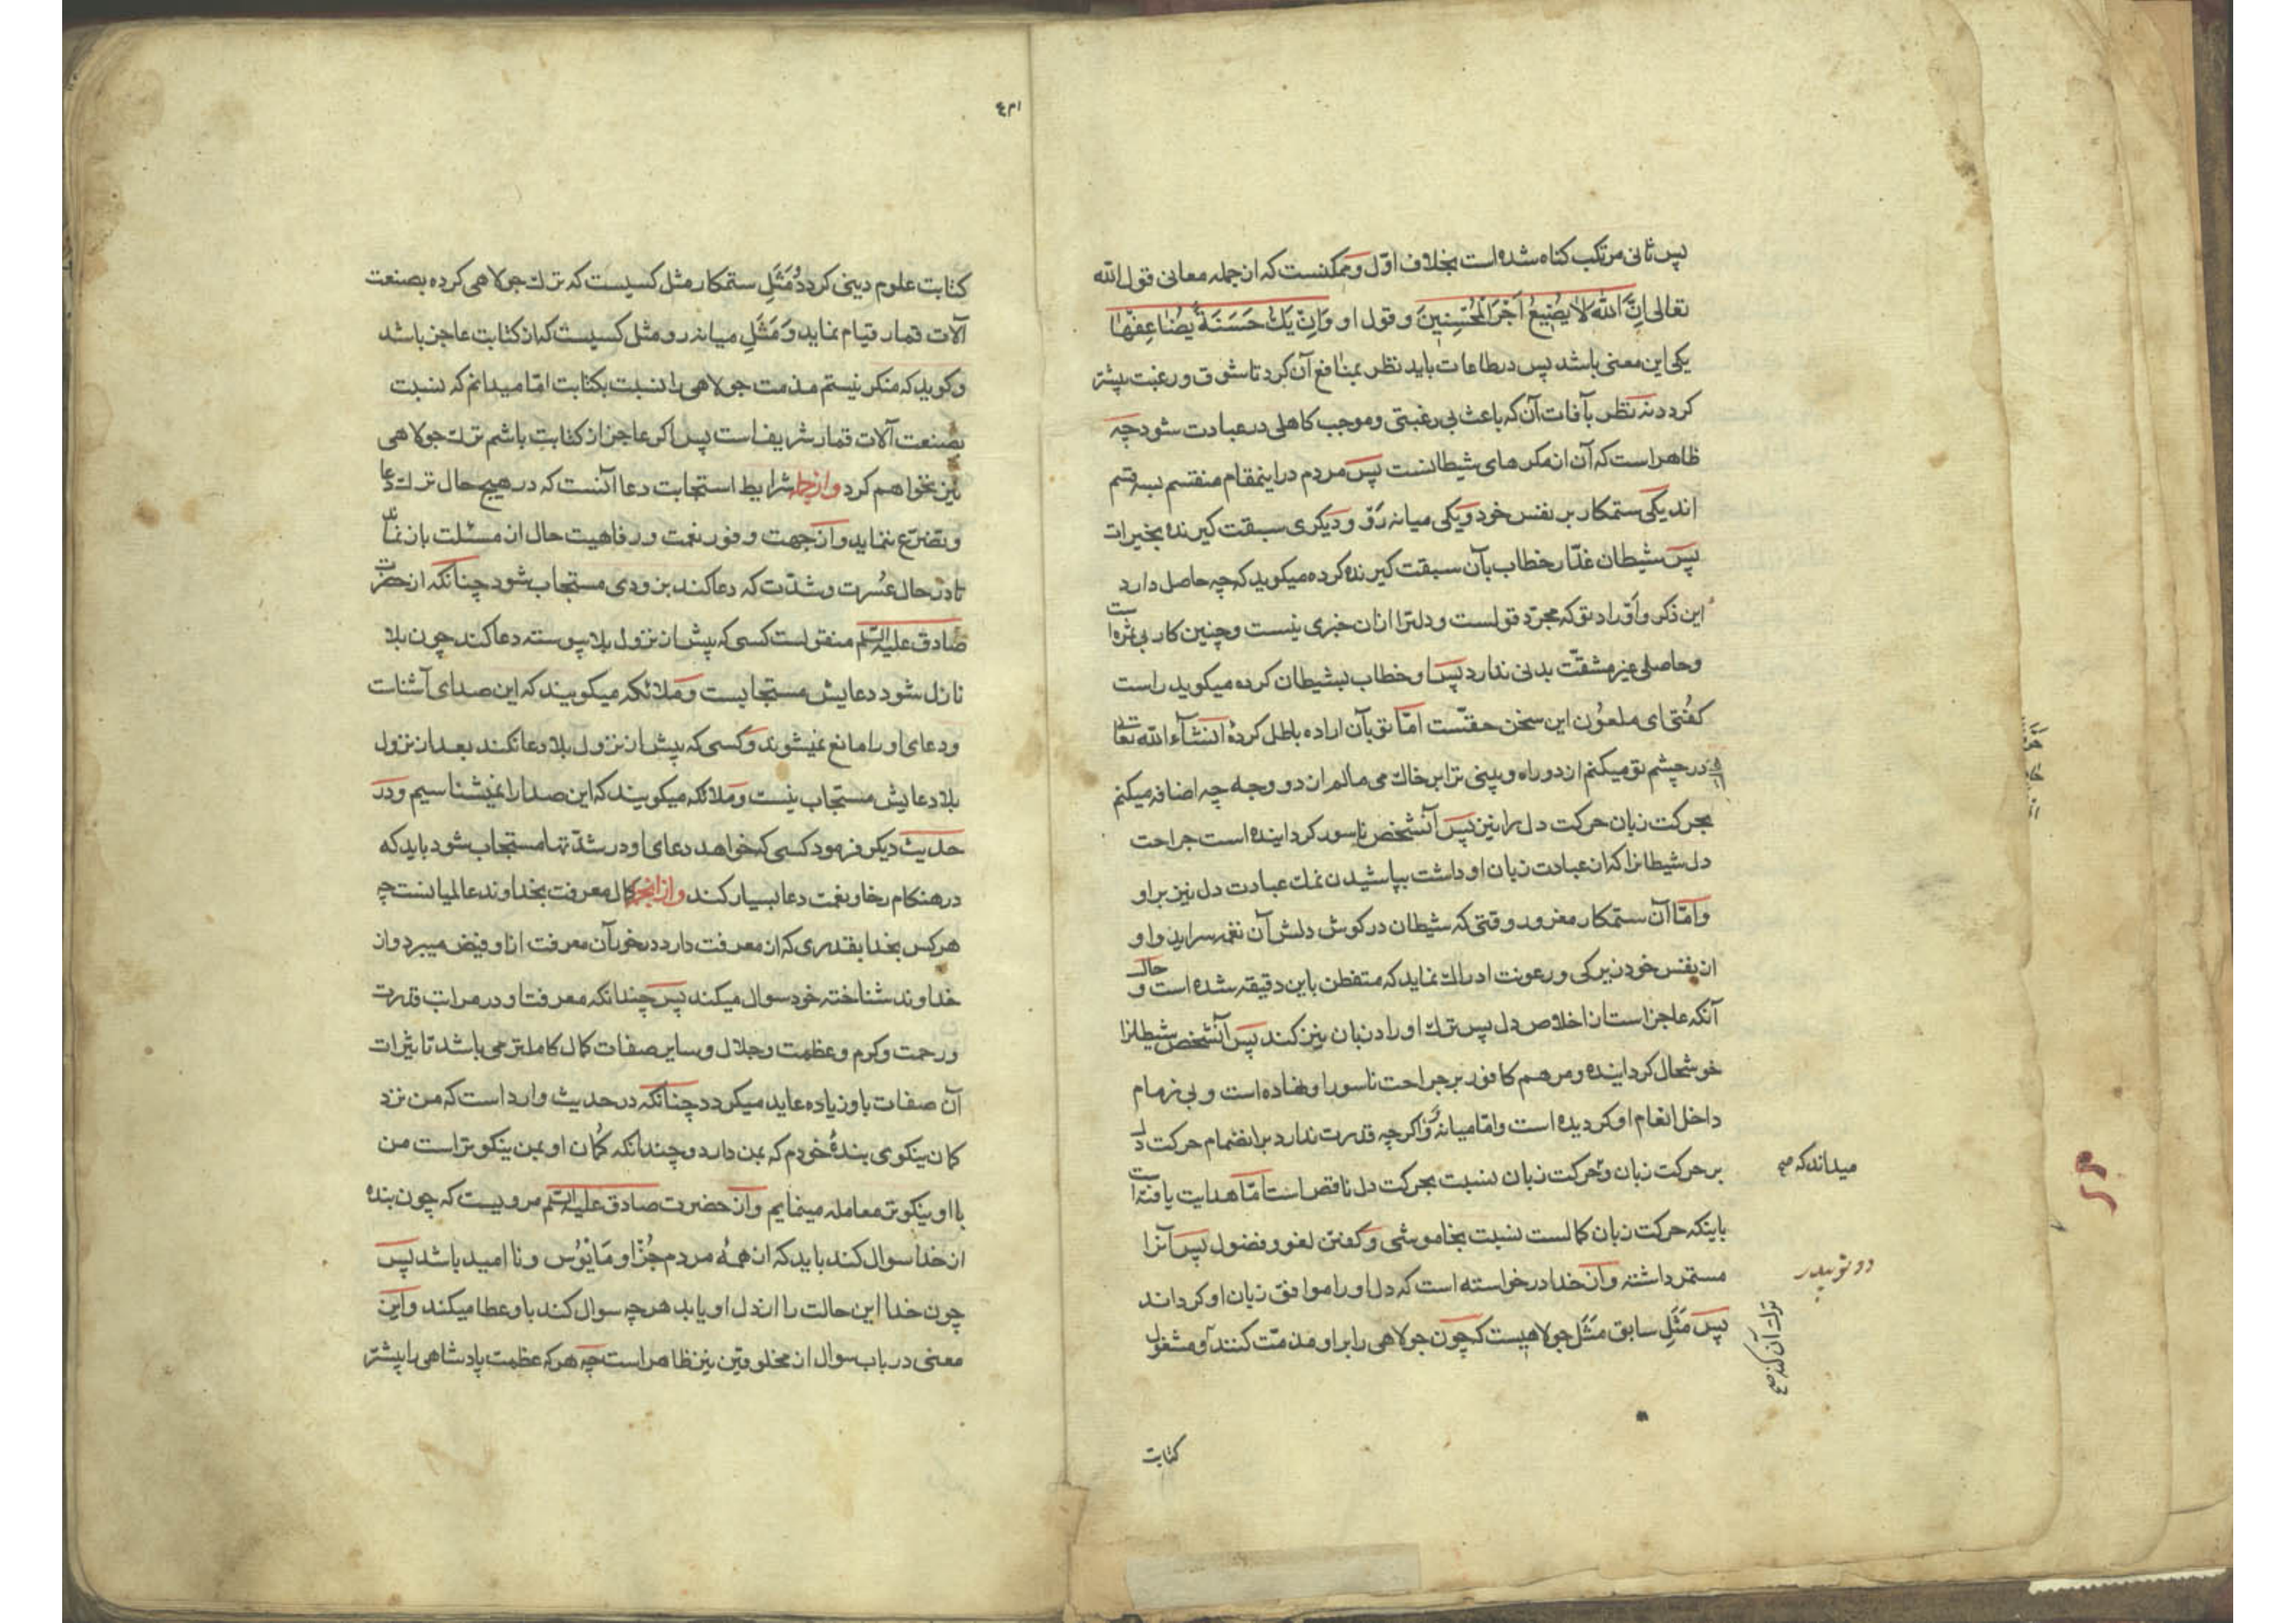 پس ثانی مرتکب کناه شده است بخلاف اوّل و ممکنست که از جمله معانی قول الله
تعالی اِنَّ اللهَ لاٰ یُضیعُ اَجْرَ الْمُحْسِنِینَ و قول او وَاِنْ یَكُ حَسَنَةً یُضٰاعِفْهٰا
یکی این معنی باشد پس در طاعات باید نظر بمنافع آن کرد تا شوق و رغبت بیشتر
کردد نه نظر بآفات آن که باعث بی رغبتی و موجب کاهلی در عبادت شود چه
ظاهر است که آن از مکرهای شیطانست پس مردم در اینمقام منقسم بسه قسم
اند یکی ستمکار بر نفس خود و یکی میانه رَوْ و دیکری سبقت کیرنده بخیرات
پس شیطان غدّار خطاب بآن سبقت کیرنده کرده میکوید که چه حاصل دارد
این ذکر و اَوْراد تو که مجرّد قولست و دلترا ازان خبری نیست و چنین کار بی ثمره است
و حاصلی غیر مشقّت بدنی ندارد پس او خطاب بشیطان کرده میکوید راست
کفتی ای ملعون این سخن حقّست امّا تو بآن اراده باطل کردهٔ انشآء الله تعالی
در چشم تو میکنم از دو راه و بینی ترا بر خاك می مالم از دو وجه چه اضافه میکنم
بحرکت زبان حرکت دل را نیز پس آنشخص ناسور کردانیده است جراحت
دل شیطانرا که از عبادت زبان او داشت بپاشیدن نمك عبادت دل نیز بر او
و امّا آن ستمکار مغرور وقتی که شیطان در کوش دلش آن نغمه سراید و او
از نفس خود زیرکی و رعونت ادراك نماید که متفطن باین دقیقه شده است و حال
آنکه عاجز است از اخلاص دل پس ترك اوراد زبان نیز کند پس آنشخص شیطانرا
خوشحال کردانیده و مرهم کافور بر جراحت ناسور او نهاده است و بی زمام
داخل انعام او کردیده است و امّا میانه رَوْ اکرچه قدرت ندارد بر انضمام حرکت دل
بر حرکت زبان و حرکت زبان نسبت بحرکت دل ناقص است امّا هدایت یافته است
میداند که صح
باینکه حرکت زبان کمالست نسبت بخاموشی و کفتن لغو و فضول پس آنرا
مستمر داشته و از خدا درخواسته است که دل او را موافق زبان او کرداند
پس مَثَلِ سابق مَثَل جولاهیست که چون جولاهی را بر او مذمّت کنند و مشغول
ترك آن کند صح
کتابت
کتابت علوم دینی کردد و مَثَلِ ستمکار مثل کسیست که ترك جولاهی کرده بصنعت
آلات قمار قیام نماید و مَثَلِ میانه رو مثل کسیست که از کتابت عاجز باشد
و کوید که منکر نیستم مذمت جولاهی را نسبت بکتابت امّا میدانم که نسبت
بصنعت آلات قمار شریفست پس اکر عاجز از کتابت باشم ترك جولاهی
نیز نخواهم کرد و ازجمله شرایط استجابت دعا آنست که در هیچ حال ترك دعا
و تضرّع ننماید و از جهت وفور نعمت و رفاهیت حال از مسئلت باز نماند
تا در حال عُسرت و شدّت که دعا کند بزودی مستجاب شود چنانکه از حضرت
صادق علیه السلم منقولست کسی که پیش از نزول بلا پیوسته دعا کند چون بلا
نازل شود دعایش مستجابست و ملائکه میکویند که این صدای آشناست
و دعای او را مانع نمیشوند و کسی که پیش از نزول بلا دعا نکند بعد از نزول
بلا دعایش مستجاب نیست و ملائکه میکویند که این صدا را نمیشناسیم و در
حدیث دیکر فرمود کسی که خواهد دعای او در شدّتها مستجاب شود باید که
در هنکام رخا و نعمت دعا بسیار کند و ازانجمله کمال معرفت بخداوند عالمیانست چه
هرکس بخدا بقدری که از معرفت دارد درخور آن معرفت ازو فیض میبرد و از
خداوند شناخته خود سوال میکند پس چندانکه معرفت او در مراتب قدرت
و رحمت و کرم و عظمت و جلال و سایر صفات کمال کاملتر می باشد تاثیرات
آن صفات باو زیاده عاید میکردد چنانکه در حدیث وارد است که من نزد
کمان نیکوی بندهٔ خودم که بمن دارد و چندانکه کمان او بمن نیکوتر است من
با او نیکوتر معامله مینمایم و از حضرت صادق علیه السلم مرویست که چون بنده
از خدا سوال کند باید که از همهٔ مردم جُزْ او مَأیوُس و نا امید باشد پس
چون خدا این حالت را از دل او یابد هرچه سوال کند باو عطا میکند و این
معنی در باب سوال از مخلوقین نیز ظاهر است چه هرکه عظمت پادشاهی را بیشتر